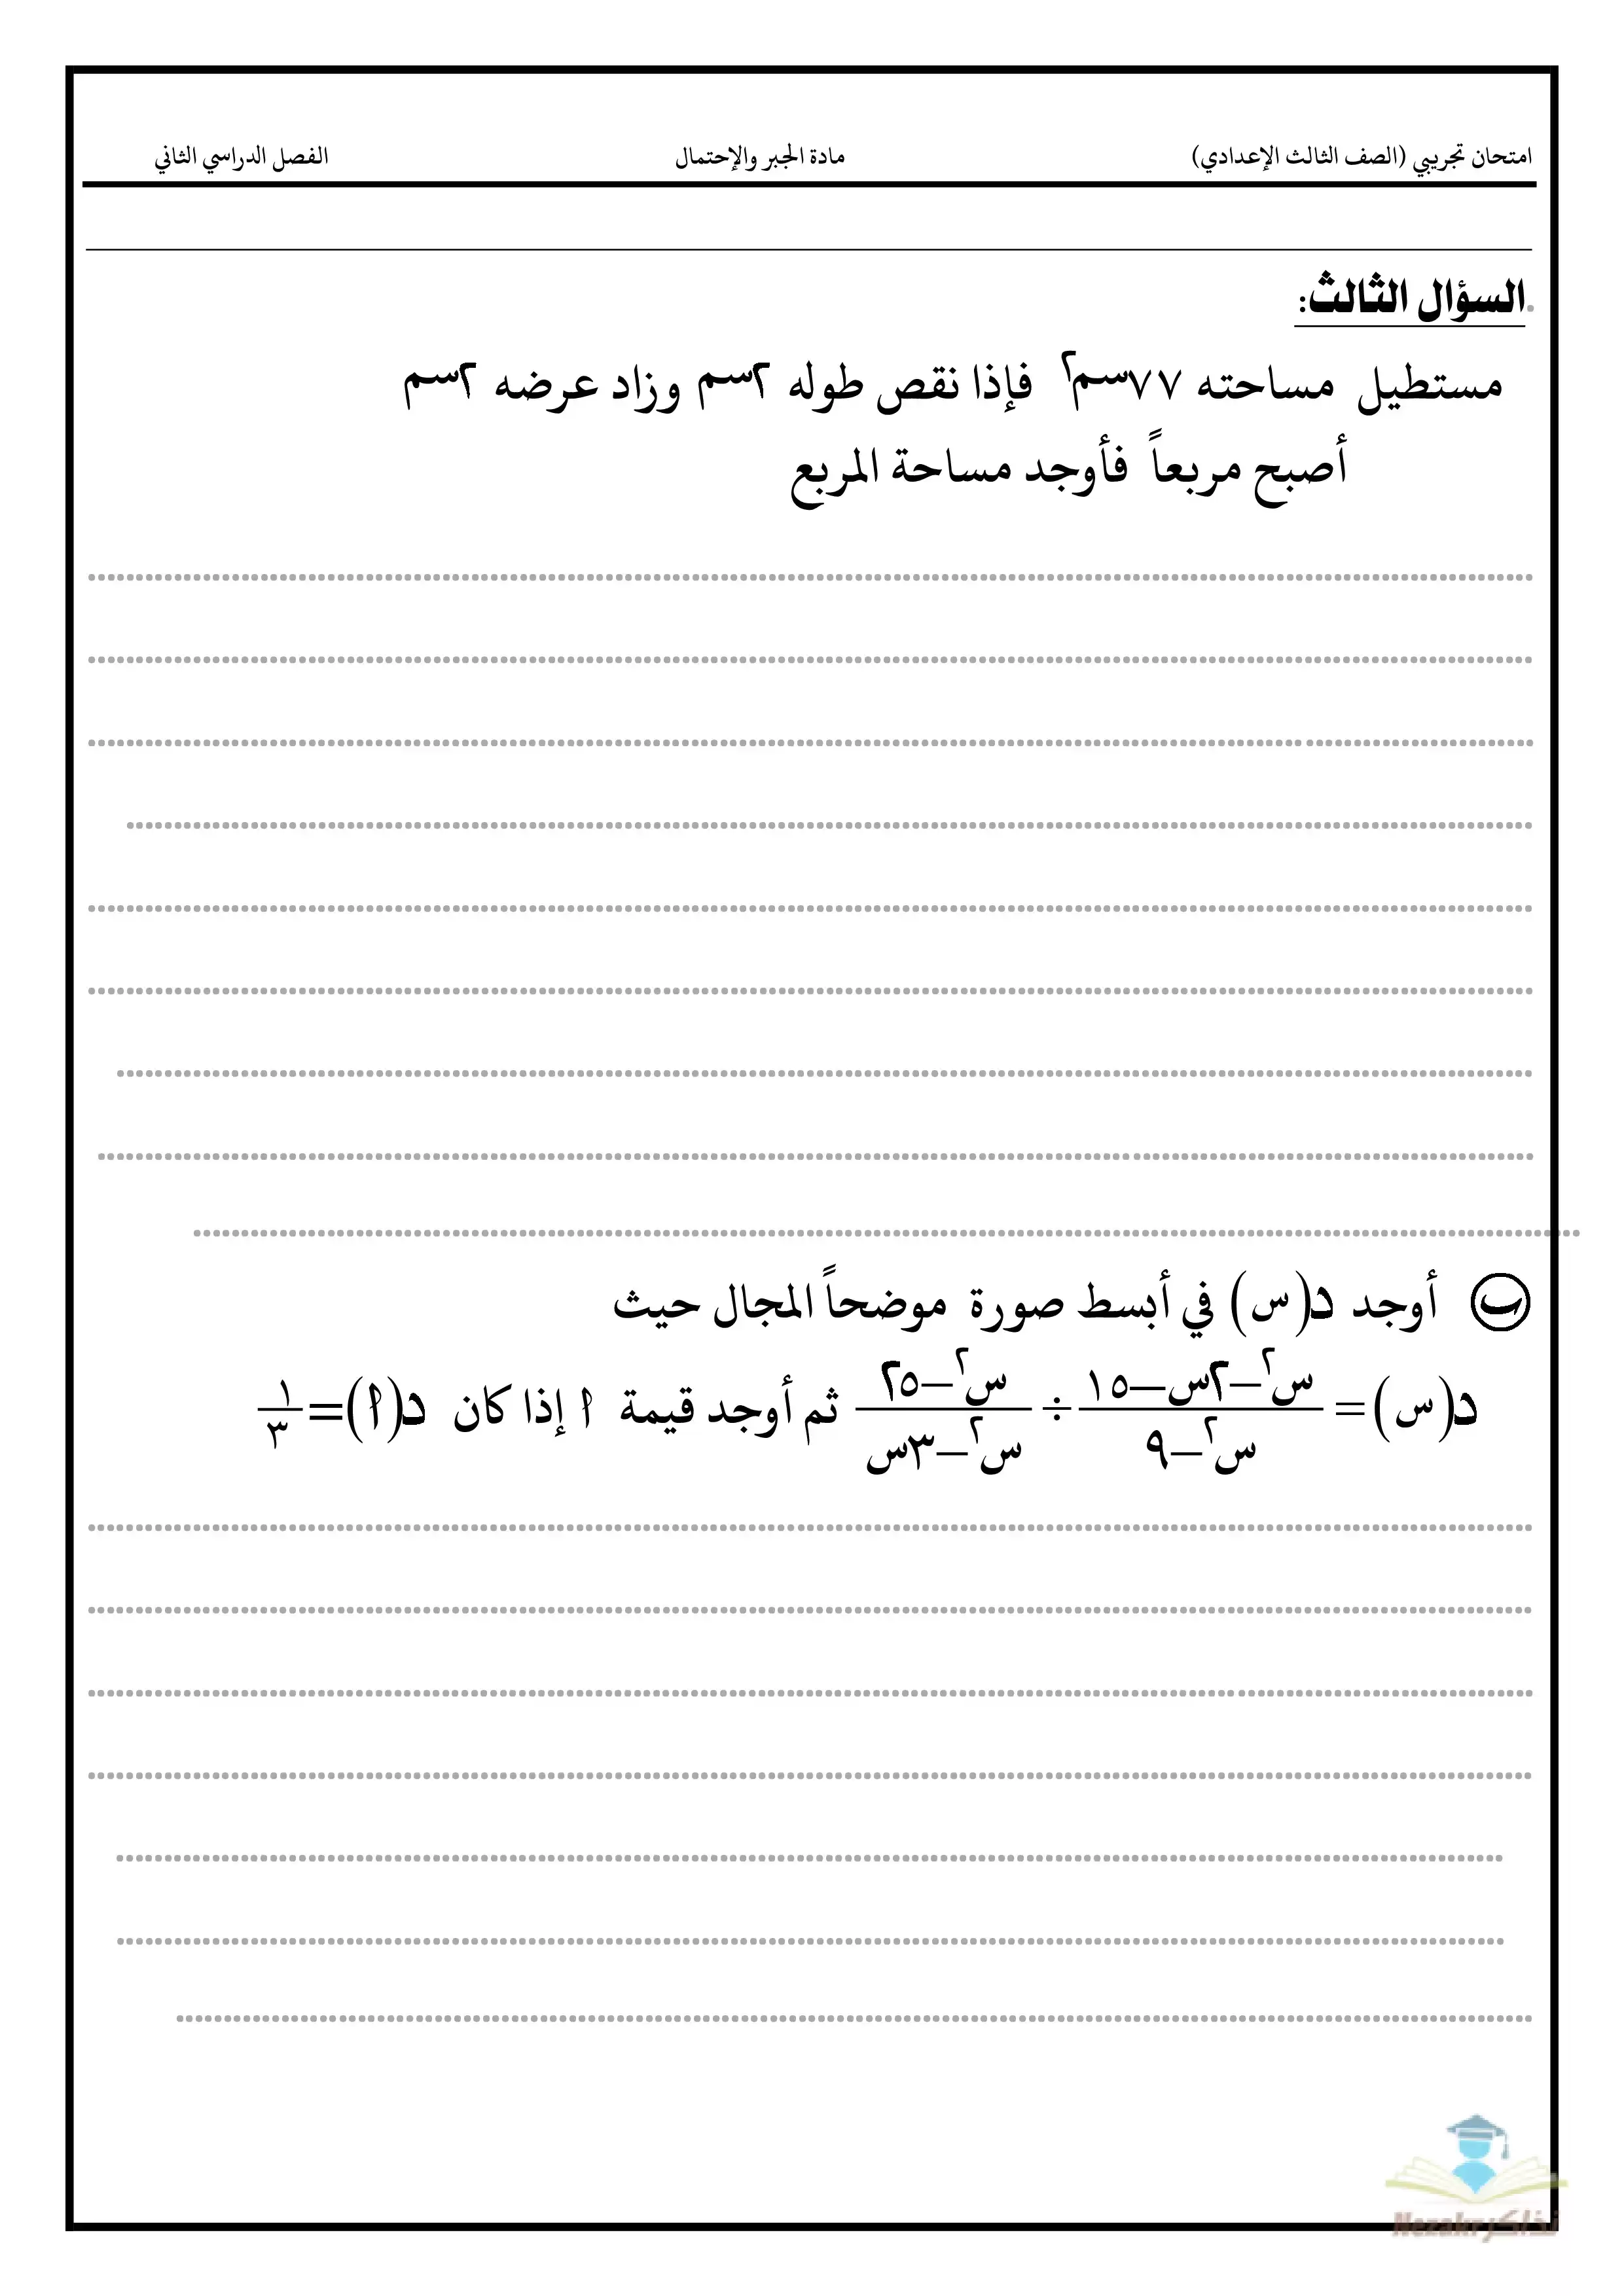 امتحان تجريبي (الصف الثالث الإعدادي) مادة الجبر والإحتمال الفصل الدراسي الثاني
السؤال الثالث:
مستطيل مساحته ٧٧سم٢ فإذا نقص طوله ٢سم وزاد عرضه ٢سم
أصبح مربعاً فأوجد مساحة المربع
ب أوجد د(س) في أبسط صورة موضحاً المجال حيث
د(س) = (س٢–٢س–١٥)/(س٢–٩) ÷ (س٢–٢٥)/(س٢–٣س) ثم أوجد قيمة أ إذا كان د(أ) = ١/٣
Nezakr نذاكر